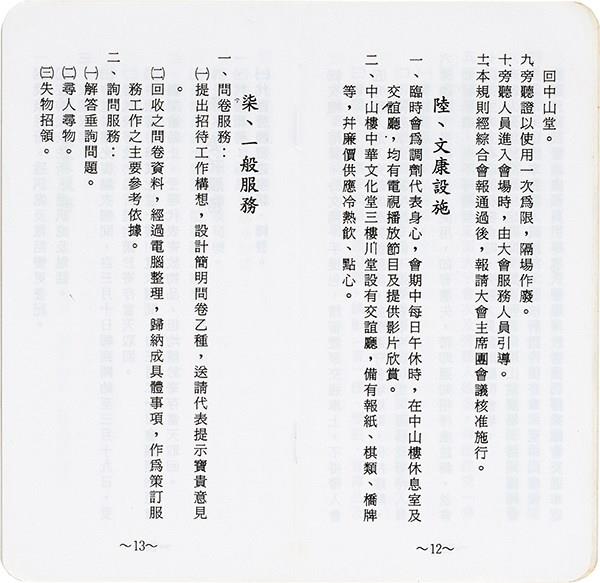 回中山堂。
九、旁聽證以使用一次為限，隔場作廢。
十、旁聽人員進入會場時，由大會服務人員引導。
十一、本規則經綜合會報通過後，報請大會主席團會議核准施行。
陸、文康設施
一、臨時會爲調劑代表身心，會期中每日午休時，在中山樓休息室及
交誼廳，均有電視播放節目及提供影片欣賞。
二、中山樓中華文化堂三樓川堂設有交誼廳，備有報紙、棋類、橋牌
等，幷廉價供應冷熱飲、點心。
～12～
柒、一般服務
一、問卷服務：
㈠提出招待工作構想，設計簡明問卷乙種，送請代表提示寶貴意見
。
㈡回收之問卷資料，經過電腦整理，歸納成具體事項，作爲策訂服
務工作之主要參考依據。
二、詢問服務：
㈠解答垂詢問題。
㈡尋人尋物。
㈢失物招領。
～13～